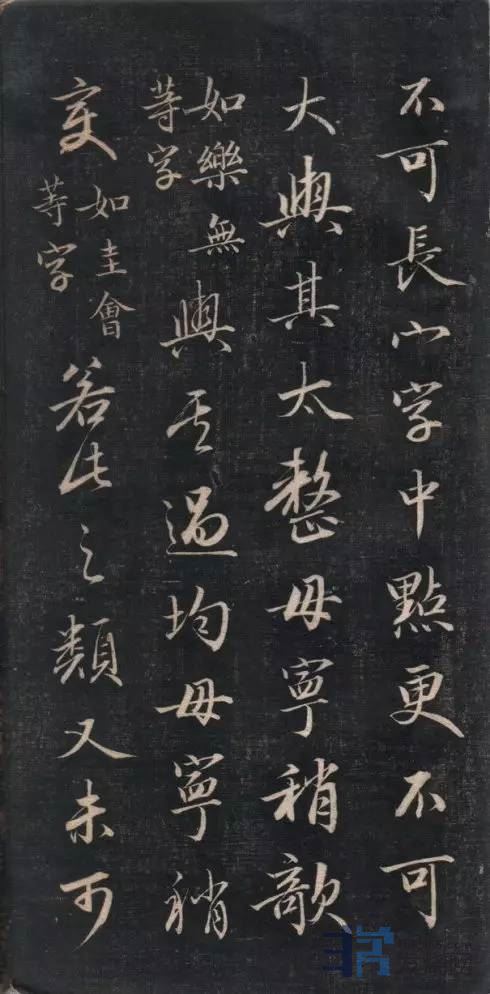 不可長宀字中點更不可
大與其太整毋寧稍欹
如樂無
等字
與其過均毋寧稍
变
如圭會
等字
若此之類又未可